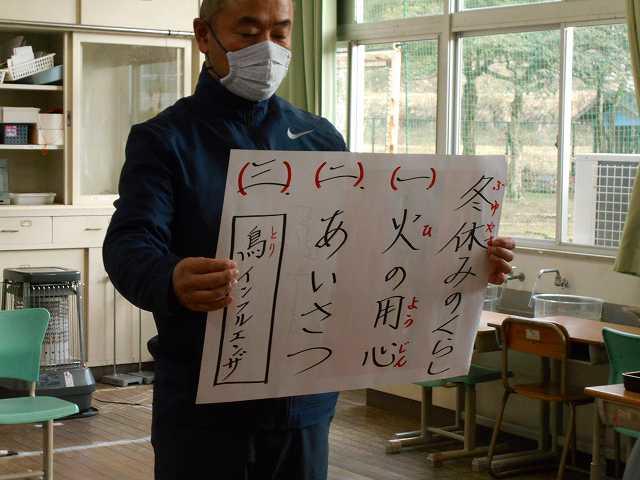 冬休みのくらし
ふゆやす
(一) 火の用心
ひ ようじん
(二) あいさつ
(三) 鳥インフルエンザ
とり